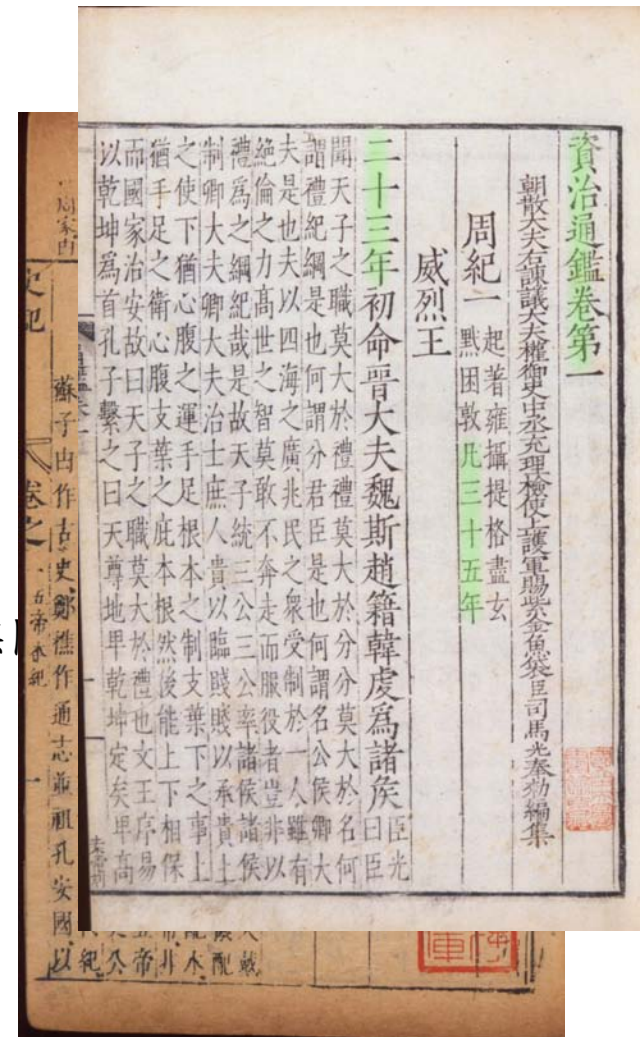 資治通鑑卷第一
朝散大夫右諫議大夫權御史中丞充理檢使上護軍賜紫金魚袋臣司馬光奉勑編集
周紀一起著雍攝提格盡玄
黓困敦凡三十五年
威烈王
二十三年初命晉大夫魏斯趙籍韓虔爲諸侯臣光
曰臣
聞天子之職莫大於禮禮莫大於分分莫大於名何
謂禮紀綱是也何謂分君臣是也何謂名公侯卿大
夫是也夫以四海之廣兆民之衆受制於一人雖有
絶倫之力高世之智莫敢不奔走而服役者豈非以
禮爲之綱紀哉是故天子統三公三公率諸侯諸侯
制卿大夫卿大夫治士庶人貴以臨賤賤以承貴上
之使下猶心腹之運手足根本之制支葉下之事上
猶手足之衛心腹支葉之庇本根然後能上下相保
而國家治安故曰天子之職莫大於禮也文王序易
以乾坤爲首孔子繫之曰天尊地卑乾坤定矣卑高
史記
卷之一
五帝本紀
蘇子由作古史鄭樵作通志並祖孔安國以